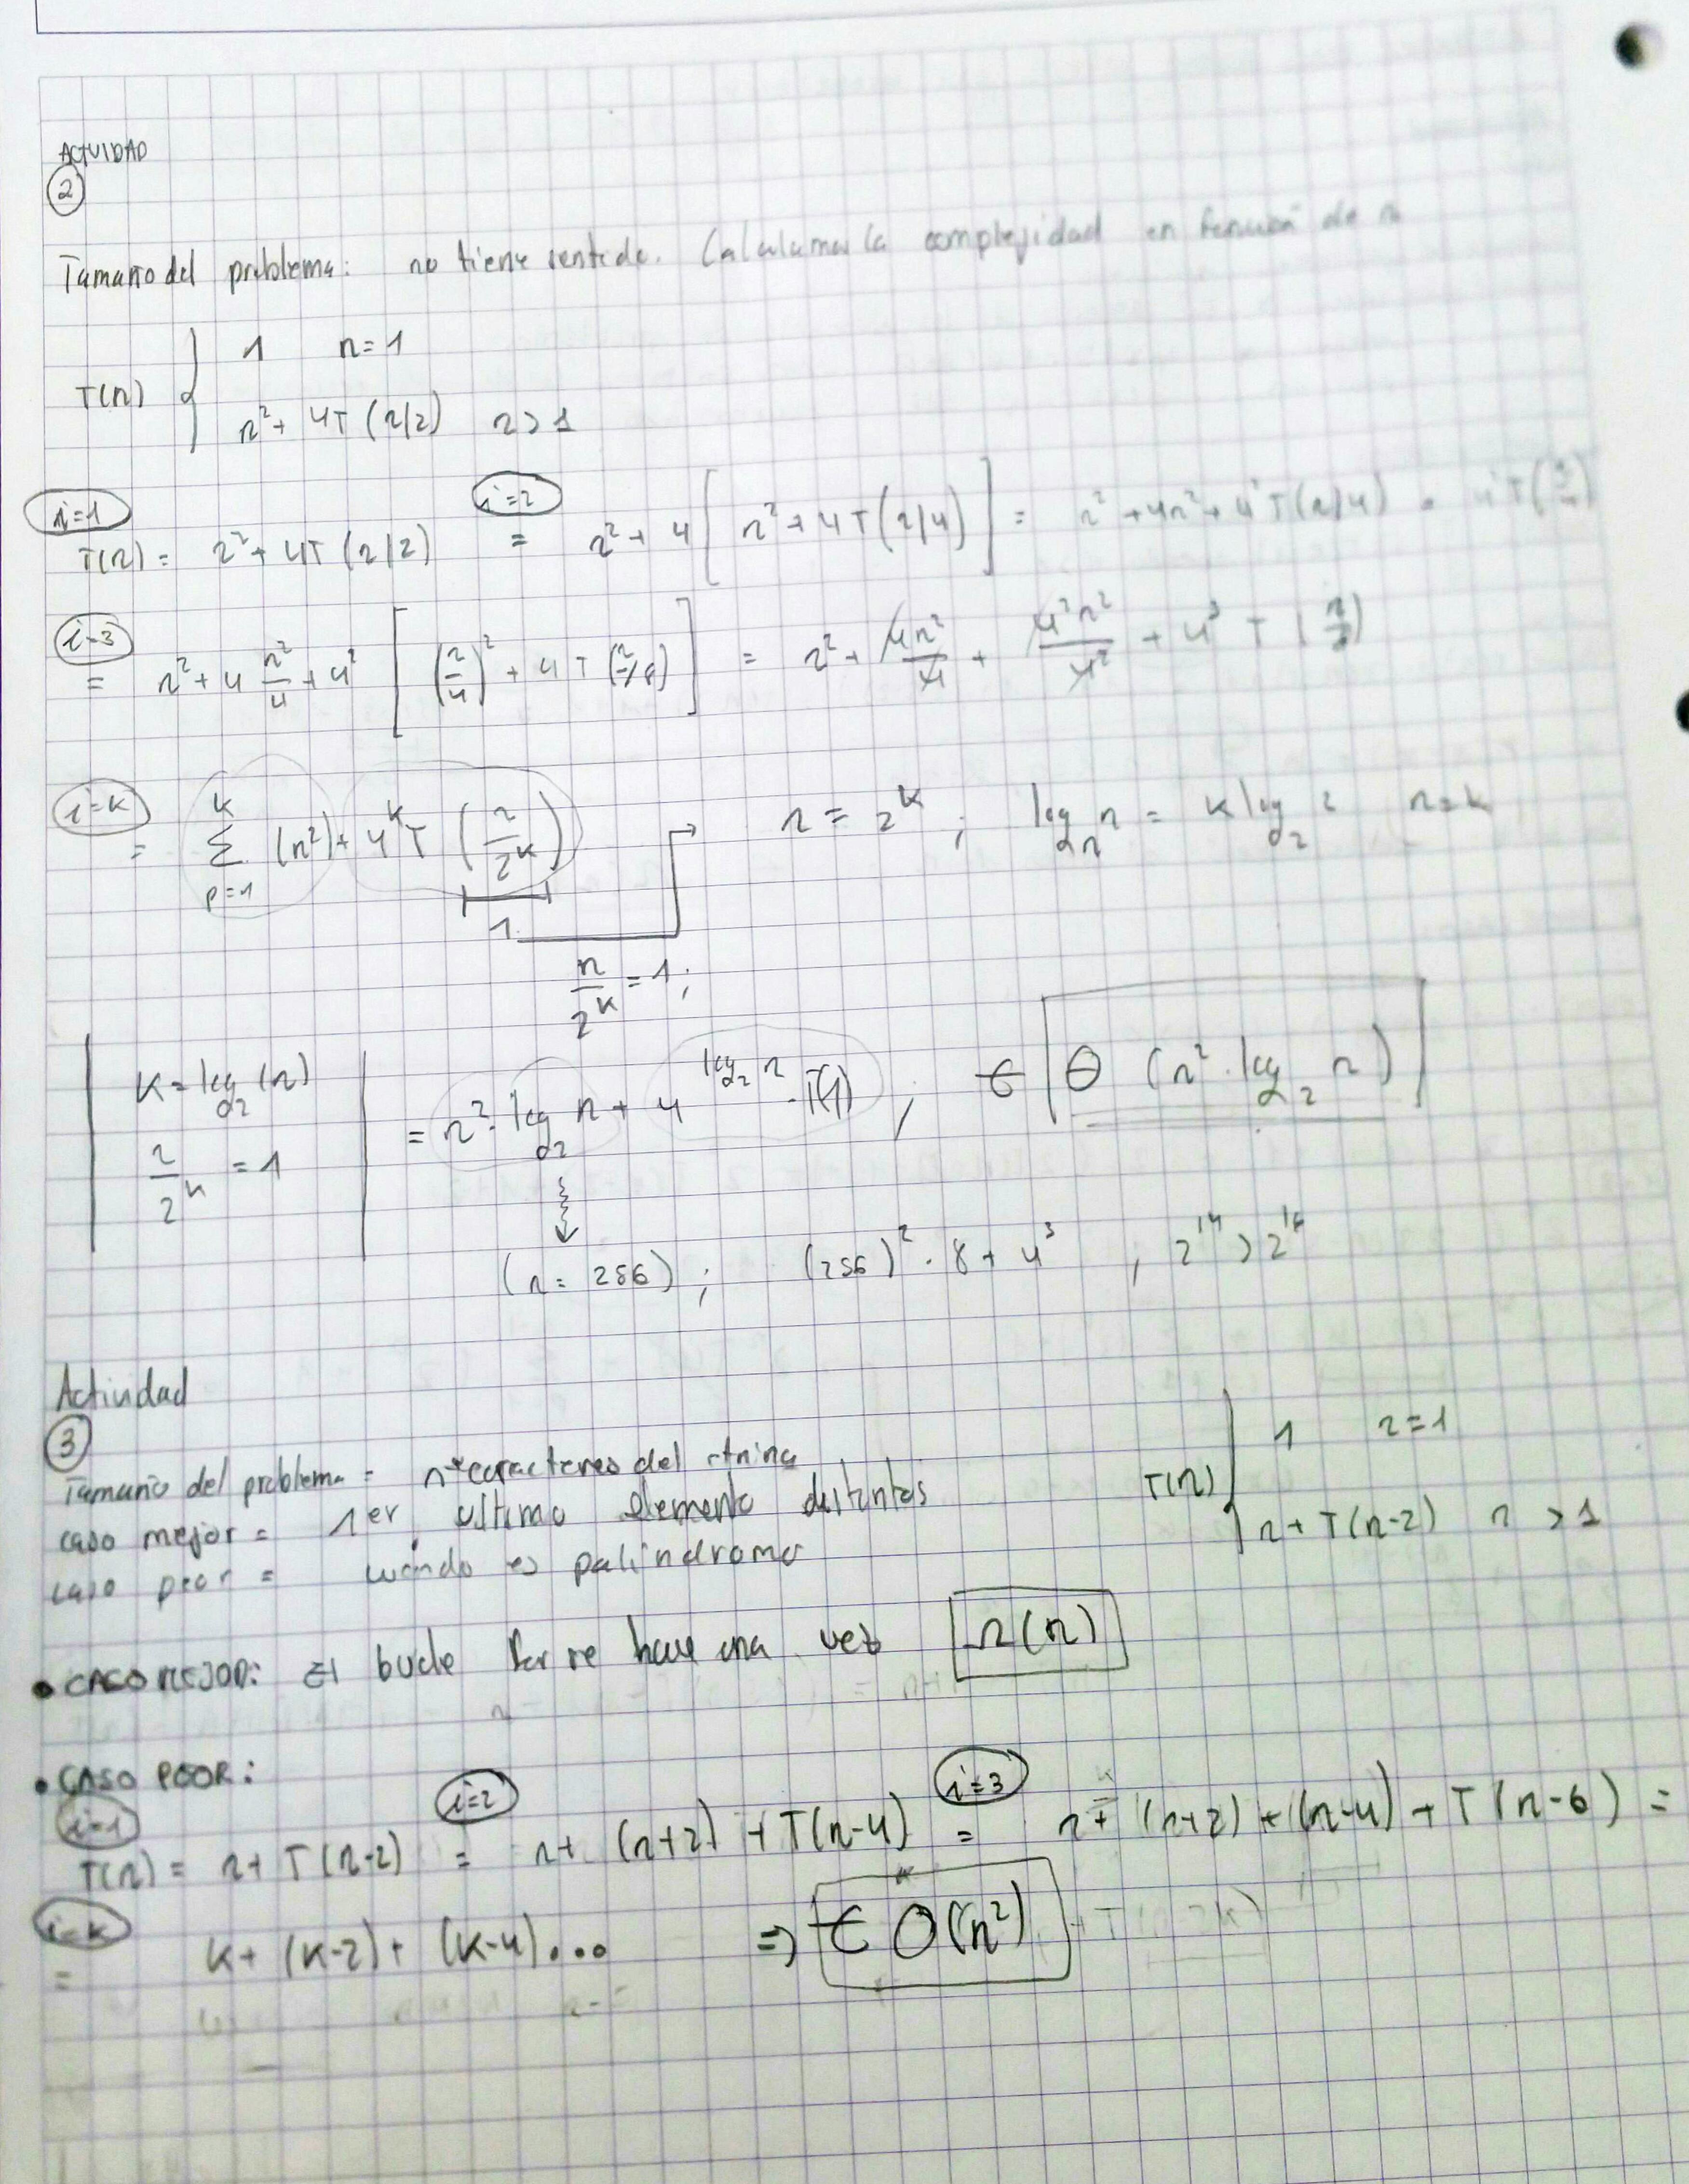 ACTVIDAD
2
Tamaño del problema: no tiene sentido. Calculamos la complejidad en función de n
T(n) { 1 n=1
n² + 4T (n/2) n > 1
i=1 i=2
T(n) = n² + 4T (n/2) = n² + 4 [ n² + 4 T (n/4) ] = n² + 4n² + 4² T(n/4)
i=3
= n² + 4 n²/4 + 4² [ (n/4)² + 4 T (n/8) ] = n² + 4n²/4 + 4²n²/4² + 4³ T (n/8)
i=k
= Σ_{p=1}^{k} (n²) + 4^k T (n/2^k) n = 2^k ; log₂ n = k log₂ 2 n=k
1
n/2^k = 1 ;
k = log₂ (n)
n/2^k = 1
= n² · log₂ n + 4^{log₂ n} · T(1) , ∈ Θ (n² · log₂ n)
(n = 256) ; (256)² · 8 + 4³ , 2^19 > 2^16
Actividad
3
Tamaño del problema = nº caracteres del string
caso mejor = 1er, ultimo elemento distintos
caso peor = cuando es palíndromo
T(n) { 1 n=1
n + T(n-2) n > 1
• CASO MEJOR: El bucle for se hace una vez Ω(n)
• CASO PEOR:
i=1 i=2 i=3
T(n) = n + T(n-2) = n + (n+2) + T(n-4) = n + (n+2) + (n-4) + T(n-6) =
i=k
= k + (k-2) + (k-4)... => ∈ O(n²)